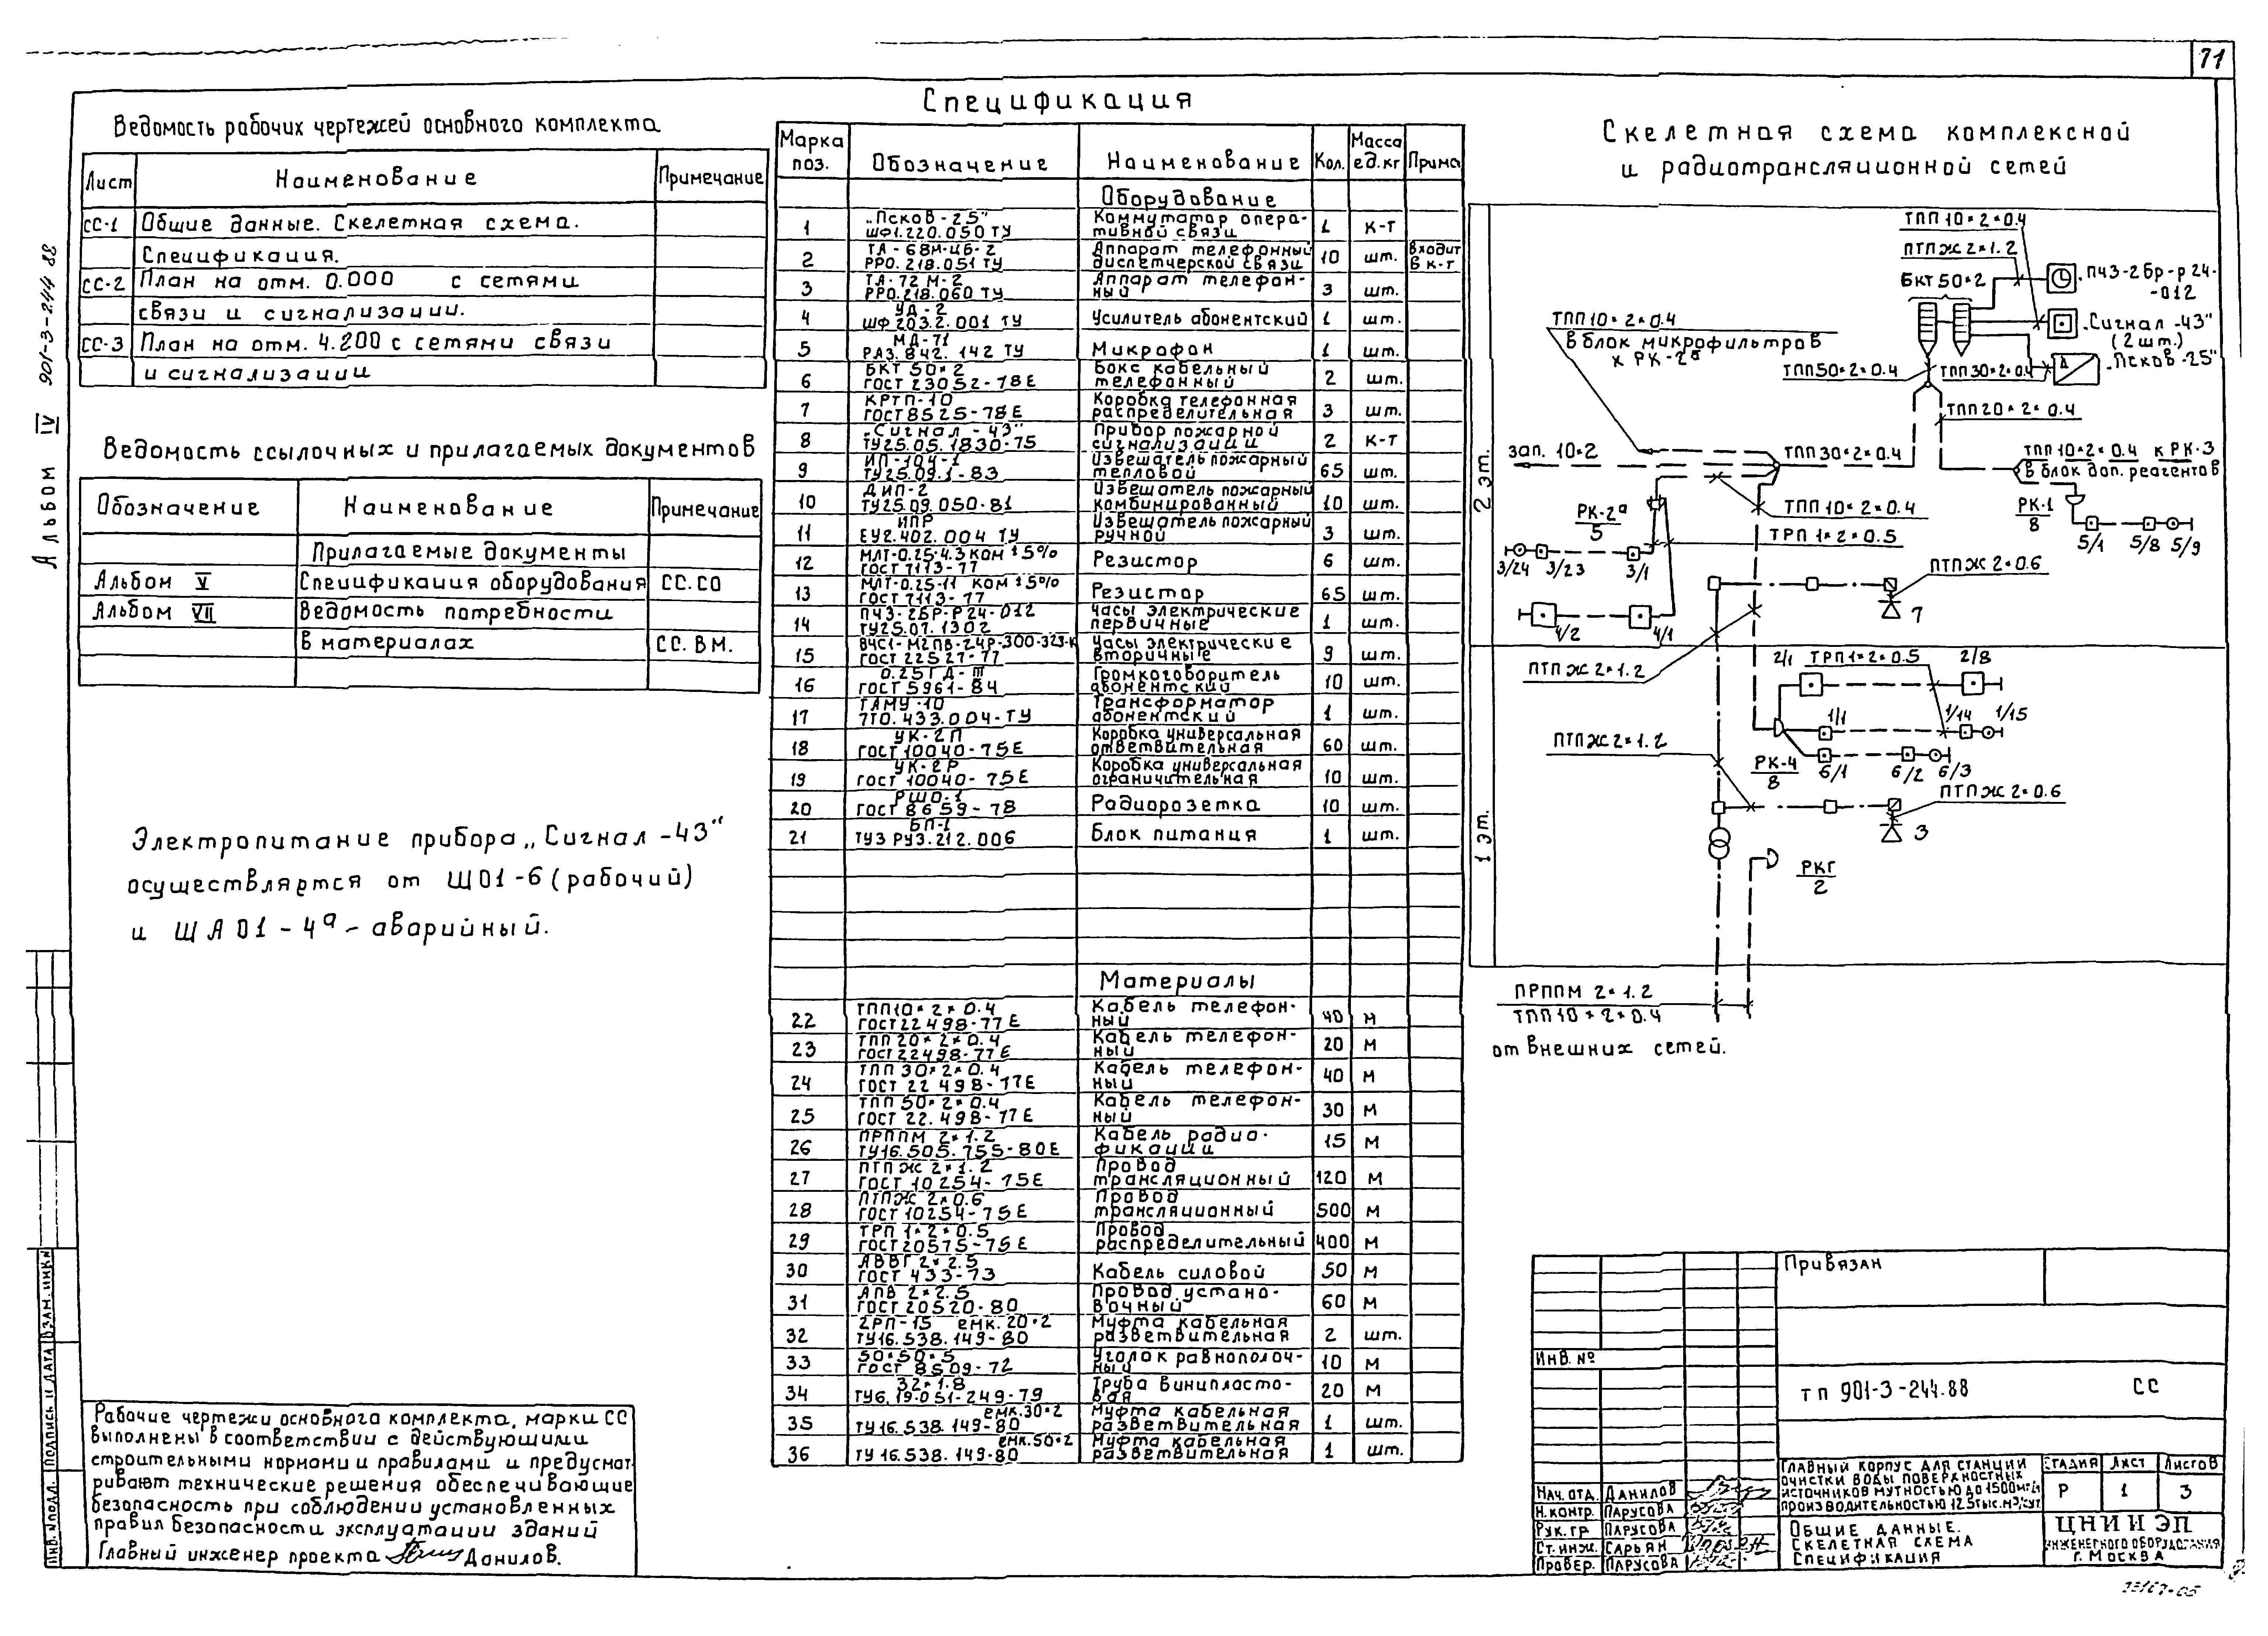 71
Альбом IV 901-3-244.88
Ведомость рабочих чертежей основного комплекта
Лист Наименование Примечание
СС-1 Общие данные. Скелетная схема.
Спецификация.
СС-2 План на отм. 0.000 с сетями
связи и сигнализации.
СС-3 План на отм. 4.200 с сетями связи
и сигнализации
Ведомость ссылочных и прилагаемых документов
Обозначение Наименование Примечание
Прилагаемые документы
Альбом V Спецификация оборудования СС.СО
Альбом VII Ведомость потребности
в материалах СС.ВМ.
Электропитание прибора „Сигнал-43"
осуществляется от ЩО1-6 (рабочий)
и ЩАО1-4а - аварийный.
Рабочие чертежи основного комплекта, марки СС
выполнены в соответствии с действующими
строительными нормами и правилами и предусмат-
ривают технические решения обеспечивающие
безопасность при соблюдении установленных
правил безопасности эксплуатации зданий
Главный инженер проекта Данилов.
Взам. инв.№
Подпись и дата
Инв. №подл.
Спецификация
Марка поз. Обозначение Наименование Кол. Масса ед.кг Прим.
Оборудование
1 „Псков-25" ШФ1.220.050 ТУ Коммутатор опера-тивной связи 1 к-т
2 ТА-68М-ЦБ-2 РРО.218.051 ТУ Аппарат телефонный диспетчерской связи 10 шт. входит в к-т
3 ТА-72 М-2 РРО.218.060 ТУ Аппарат телефон-ный 3 шт.
4 УД-2 ШФ 203.2.001 ТУ Усилитель абонентский 1 шт.
5 МД-71 РАЗ.842.142 ТУ Микрофон 1 шт.
6 БКТ 50×2 ГОСТ 23052-78Е Бокс кабельный телефонный 2 шт.
7 КРТП-10 ГОСТ 8525-78Е Коробка телефонная распределительная 3 шт.
8 „Сигнал-43" ТУ25.05.1830-75 Прибор пожарной сигнализации 2 к-т
9 ИП-104-1 ТУ25.09.1-83 Извещатель пожарный тепловой 65 шт.
10 ДИП-2 ТУ25.09.050-81 Извещатель пожарный комбинированный 10 шт.
11 ИПР ЕУ2.402.004 ТУ Извещатель пожарный ручной 3 шт.
12 МЛТ-0.25-4.3 ком ±5% ГОСТ 7113-77 Резистор 6 шт.
13 МЛТ-0.25-11 ком ±5% ГОСТ 7113-77 Резистор 65 шт.
14 ПЧ3-2БР-Р24-012 ТУ25.07.1302 Часы электрические первичные 1 шт.
15 ВЧС1-М2ПВ-24Р-300-323-К ГОСТ 22527-77 Часы электрические вторичные 9 шт.
16 0.25ГД-III ГОСТ 5961-84 Громкоговоритель абонентский 10 шт.
17 ТАМУ-10 7ТО.433.004-ТУ Трансформатор абонентский 1 шт.
18 УК-2П ГОСТ 10040-75Е Коробка универсальная ответвительная 60 шт.
19 УК-2Р ГОСТ 10040-75Е Коробка универсальная ограничительная 10 шт.
20 РШО-1 ГОСТ 8659-78 Радиорозетка 10 шт.
21 БП-1 ТУ3 РУ3.212.006 Блок питания 1 шт.
Материалы
22 ТПП10×2×0.4 ГОСТ22498-77Е Кабель телефон-ный 40 м
23 ТПП 20×2×0.4 ГОСТ22498-77Е Кабель телефон-ный 20 м
24 ТПП 30×2×0.4 ГОСТ 22498-77Е Кабель телефон-ный 40 м
25 ТПП 50×2×0.4 ГОСТ 22.498-77Е Кабель телефон-ный 30 м
26 ПРППМ 2×1.2 ТУ16.505.755-80Е Кабель радио-фикации 15 м
27 ПТПЖ 2×1.2 ГОСТ 10254-75Е Провод трансляционный 120 м
28 ПТПЖ 2×0.6 ГОСТ 10254-75Е Провод трансляционный 500 м
29 ТРП 1×2×0.5 ГОСТ20575-75Е Провод распределительный 400 м
30 АВВГ 2×2.5 ГОСТ 433-73 Кабель силовой 50 м
31 АПВ 2×2.5 ГОСТ 20520-80 Провод устано-вочный 60 м
32 2РП-15 емк.20×2 ТУ16.538.149-80 Муфта кабельная разветвительная 2 шт.
33 50×50×5 ГОСТ 8509-72 Уголок равнополоч-ный 10 м
34 32×1.8 ТУ6.19-051-249-79 Труба винипласто-вая 20 м
35 емк.30×2 ТУ16.538.149-80 Муфта кабельная разветвительная 1 шт.
36 емк.50×2 ТУ16.538.149-80 Муфта кабельная разветвительная 1 шт.
Скелетная схема комплексной
и радиотрансляционной сетей
2 эт.
1 эт.
ТПП 10×2×0.4
ПТПЖ 2×1.2
БКТ 50×2
ПЧ3-2бр-р24-
-012
„Сигнал-43"
(2 шт.)
„Псков-25"
ТПП 10×2×0.4
в блок микрофильтров
к РК-2а
ТПП50×2×0.4
ТПП 30×2×0.4
ТПП20×2×0.4
зап. 10×2
ТПП 30×2×0.4
ТПП 10×2×0.4 к РК-3
в блок доп. реагентов
РК-2а
5
ТПП 10×2×0.4
ТРП 1×2×0.5
РК-1
8
5/1 5/8 5/9
3/24 3/23 3/1
ПТПЖ 2×0.6
7
4/2 4/1
ПТПЖ 2×1.2
2/1 ТРП1×2×0.5 2/8
1/1 1/14 1/15
ПТПЖ 2×1.2
РК-4
8
6/1 6/2 6/3
ПТПЖ 2×0.6
3
РКГ
2
ПРППМ 2×1.2
ТПП10×2×0.4
от внешних сетей.
Привязан
Инв. №
тп 901-3-244.88 СС
Нач. отд. Данилов
Н.контр. Парусова
Рук. гр. Парусова
Ст. инж. Сарьян
Провер. Парусова
Главный корпус для станции
очистки воды поверхностных
источников мутностью до 1500мг/л
производительностью 12.5тыс.м3/сут
Стадия Лист Листов
Р 1 3
Общие данные.
Скелетная схема
Спецификация
ЦНИИЭП
инженерного оборудования
г. Москва